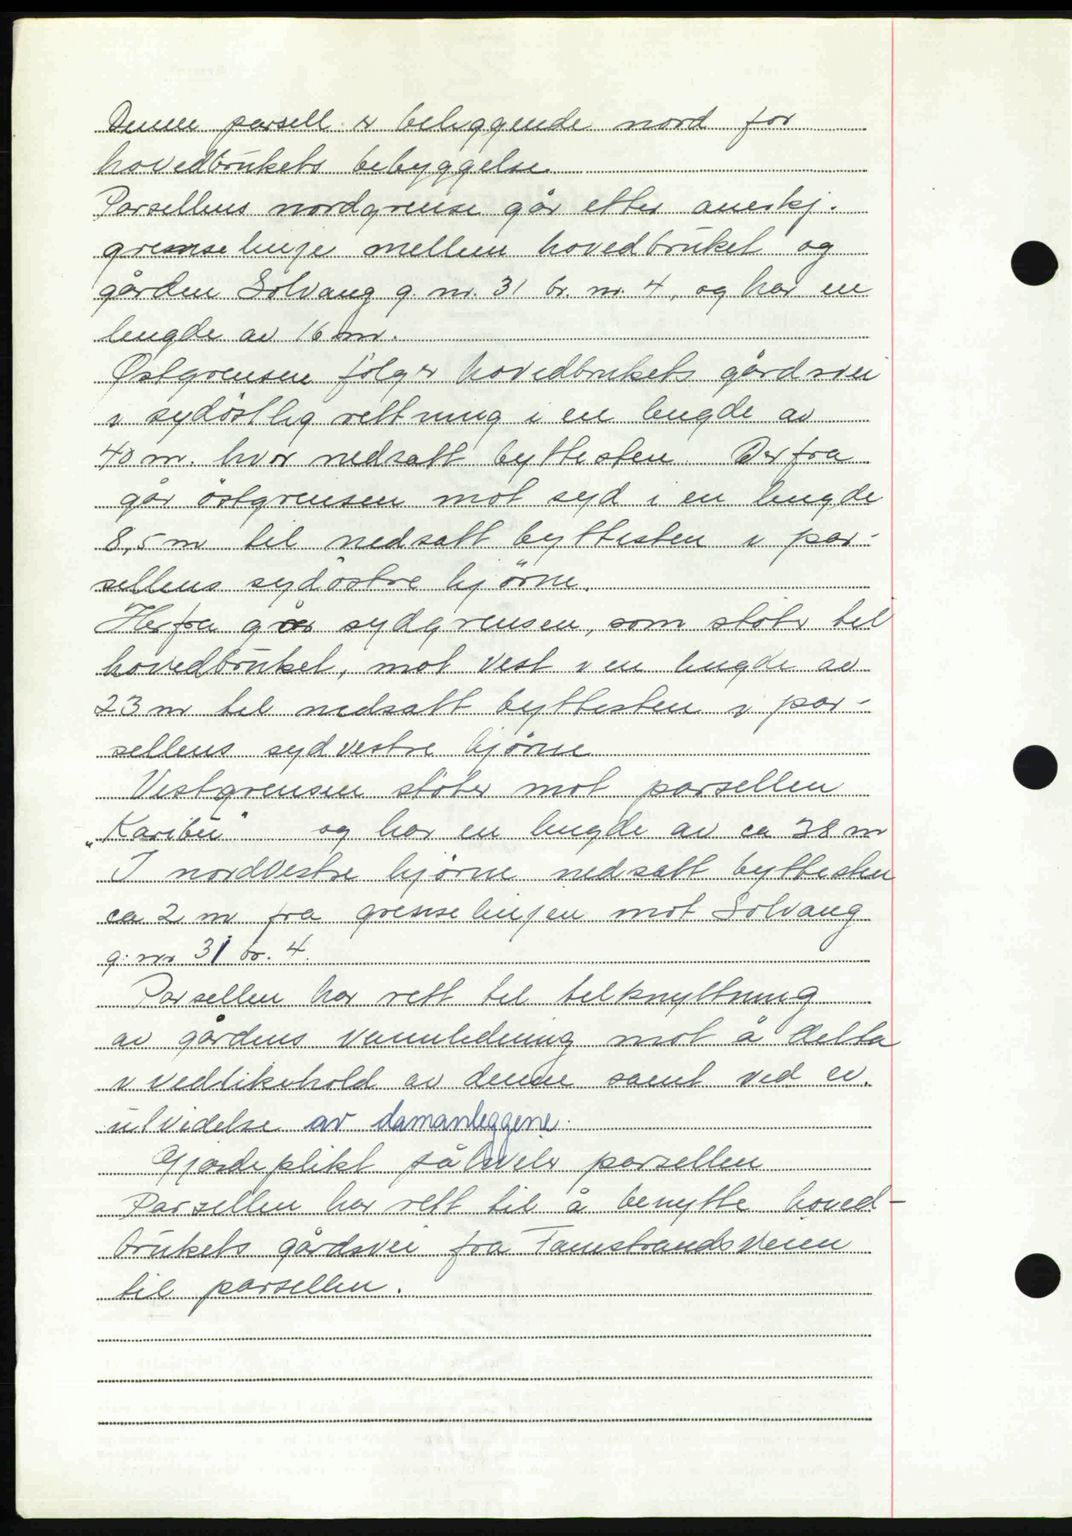 Denne parsell er beliggende nord for
hovedbrukets bebyggelse.
Parsellens nordgrense går etter anerkj.
grenselinje mellem hovedbruket og
gården Solvang g. nr. 31 br. nr. 4, og har en
lengde av 16 m.
Østgrensen følger hovedbrukets gårdsvei
i sydöstlig rettning i en lengde av
40 m. hvor nedsatt byttesten. Derfra
går östgrensen mot syd i en lengde
8,5 m til nedsatt byttesten i par-
sellens sydöstre hjörne.
Herfra går sydgrensen, som stöter til
hovedbruket, mot vest i en lengde av
23 m til nedsatt byttesten i par-
sellens sydvestre hjörne.
Vestgrensen stöter mot parsellen
„Karibu" og har en lengde av ca 38 m
I nordvestre hjörne nedsatt byttesten
ca 2 m fra grenselinjen mot Solvang
g. nr 31 br. 4.
Parsellen har rett til tilknyttning
av gårdens vannledning mot å delta
i vedlikehold av denne samt ved ev.
utvidelse av damanleggene.
Gjerdeplikt påhviler parsellen
Parsellen har rett til å benytte hoved-
brukets gårdsvei fra Tamstrandsveien
til parsellen.